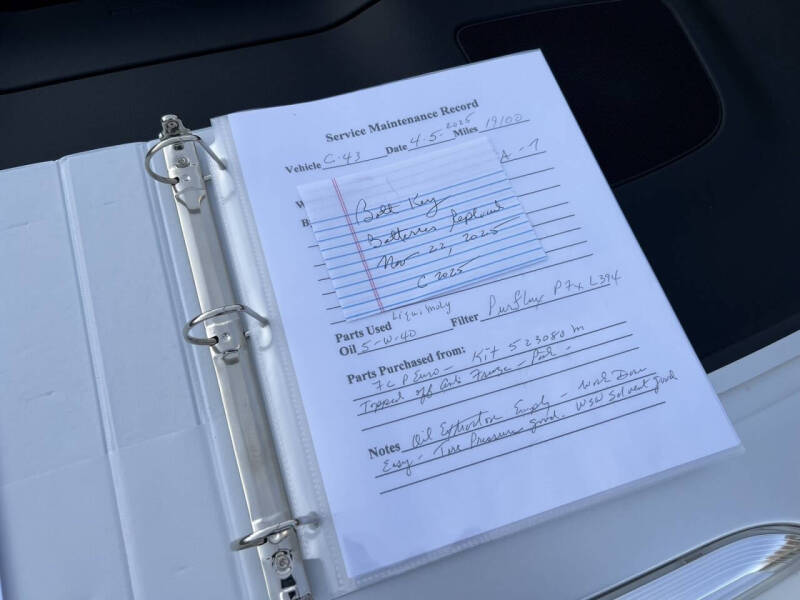 Service Maintenance Record
Vehicle C-43 Date 4-5-2025 Miles 19100
A-7
Both Key
Batteries Replaced
Nov 22, 2025
C 2025
Parts Used Liqui Moly
Oil 5-W-40 Filter Purflux P7x L394
Parts Purchased from:
FCP Euro - Kit 523080 m
Topped off Anti Freeze - Pink -
Notes Oil Extractor Empty - Work Done
Easy - Tire Pressure good. WSW Solvent good